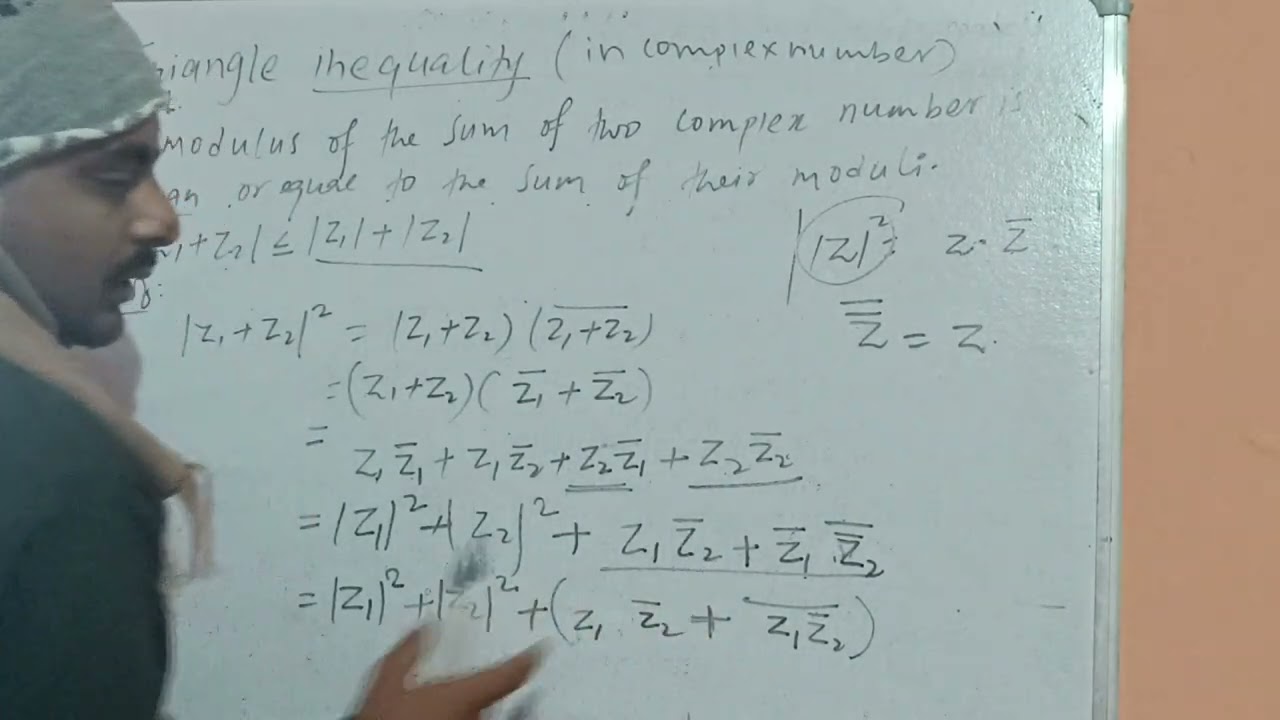 iangle inequality (in complex number)
modulus of the sum of two complex number is
an or equal to the sum of their moduli.
1+z₂| ≤ |z₁|+|z₂|
|z|² = z · z̄
z̿ = z.
|z₁+z₂|² = (z₁+z₂) (z₁+z₂)̅
= (z₁+z₂)( z̄₁ + z̄₂)
= z₁z̄₁ + z₁z̄₂ + z₂z̄₁ + z₂z̄₂
= |z₁|² + |z₂|² + z₁z̄₂ + z̄₁z̿₂
= |z₁|² + |z₂|² + (z₁ z̄₂ + z̅₁̅z̿₂)